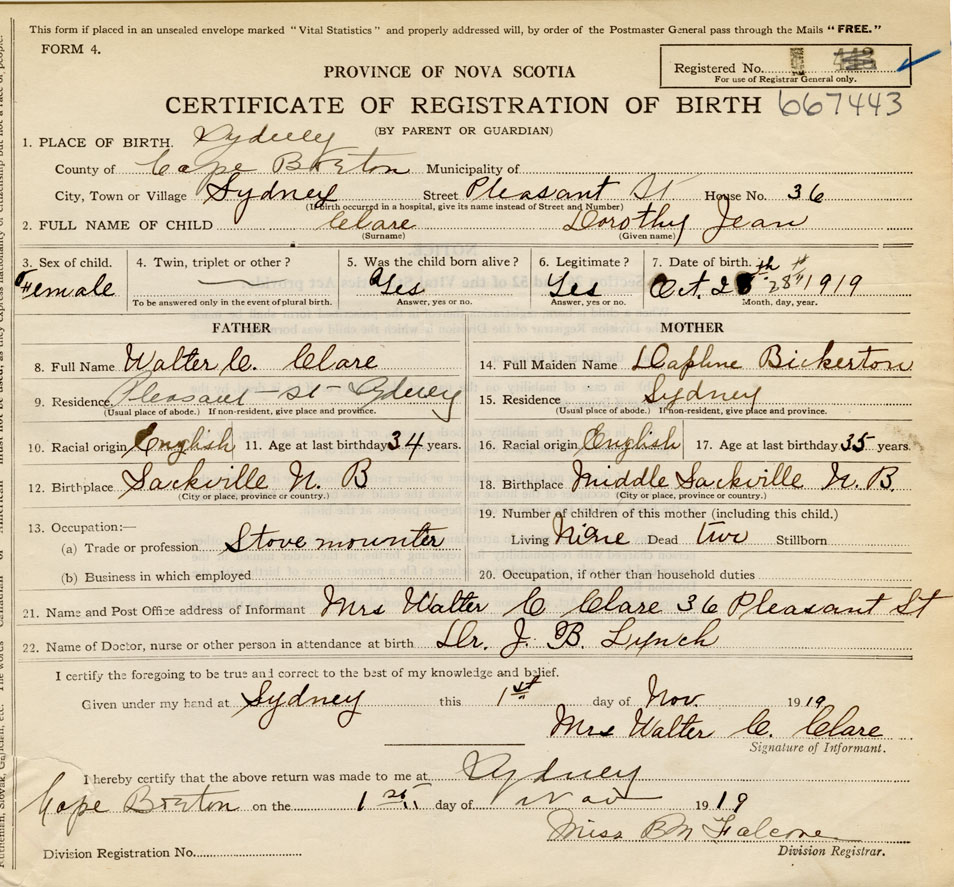 This form if placed in an unsealed envelope marked "Vital Statistics" and properly addressed will, by order of the Postmaster General pass through the Mails "FREE."
FORM 4.
Registered No.
For use of Registrar General only.
PROVINCE OF NOVA SCOTIA
CERTIFICATE OF REGISTRATION OF BIRTH 667443
(BY PARENT OR GUARDIAN)
1. PLACE OF BIRTH. Sydney
County of Cape Breton Municipality of
City, Town or Village Sydney Street Pleasant St House No. 36
(If birth occurred in a hospital, give its name instead of Street and Number)
2. FULL NAME OF CHILD Clare Dorothy Jean
(Surname) (Given name)
3. Sex of child. 4. Twin, triplet or other? 5. Was the child born alive? 6. Legitimate? 7. Date of birth.
Female Yes Yes Oct. 28th 1919
To be answered only in the event of plural birth. Answer, yes or no. Answer, yes or no. Month, day, year.
FATHER MOTHER
8. Full Name Walter C. Clare 14. Full Maiden Name Daphne Bickerton
9. Residence Pleasant St Sydney 15. Residence Sydney
(Usual place of abode.) If non-resident, give place and province. (Usual place of abode.) If non-resident, give place and province.
10. Racial origin English 11. Age at last birthday 34 years. 16. Racial origin English 17. Age at last birthday 35 years.
12. Birthplace Sackville N. B 18. Birthplace Middle Sackville N. B.
(City or place, province or country.) (City or place, province or country.)
13. Occupation:— 19. Number of children of this mother (including this child.)
(a) Trade or profession Stove mounter Living Nine Dead two Stillborn
(b) Business in which employed 20. Occupation, if other than household duties
21. Name and Post Office address of Informant Mrs Walter C Clare 36 Pleasant St
22. Name of Doctor, nurse or other person in attendance at birth Dr. J. B. Lynch
I certify the foregoing to be true and correct to the best of my knowledge and belief.
Given under my hand at Sydney this 1st day of Nov. 1919
Mrs Walter C. Clare
Signature of Informant.
I hereby certify that the above return was made to me at Sydney
Cape Breton on the 1st day of Nov 1919
Miss B M Falcone
Division Registration No. Division Registrar.